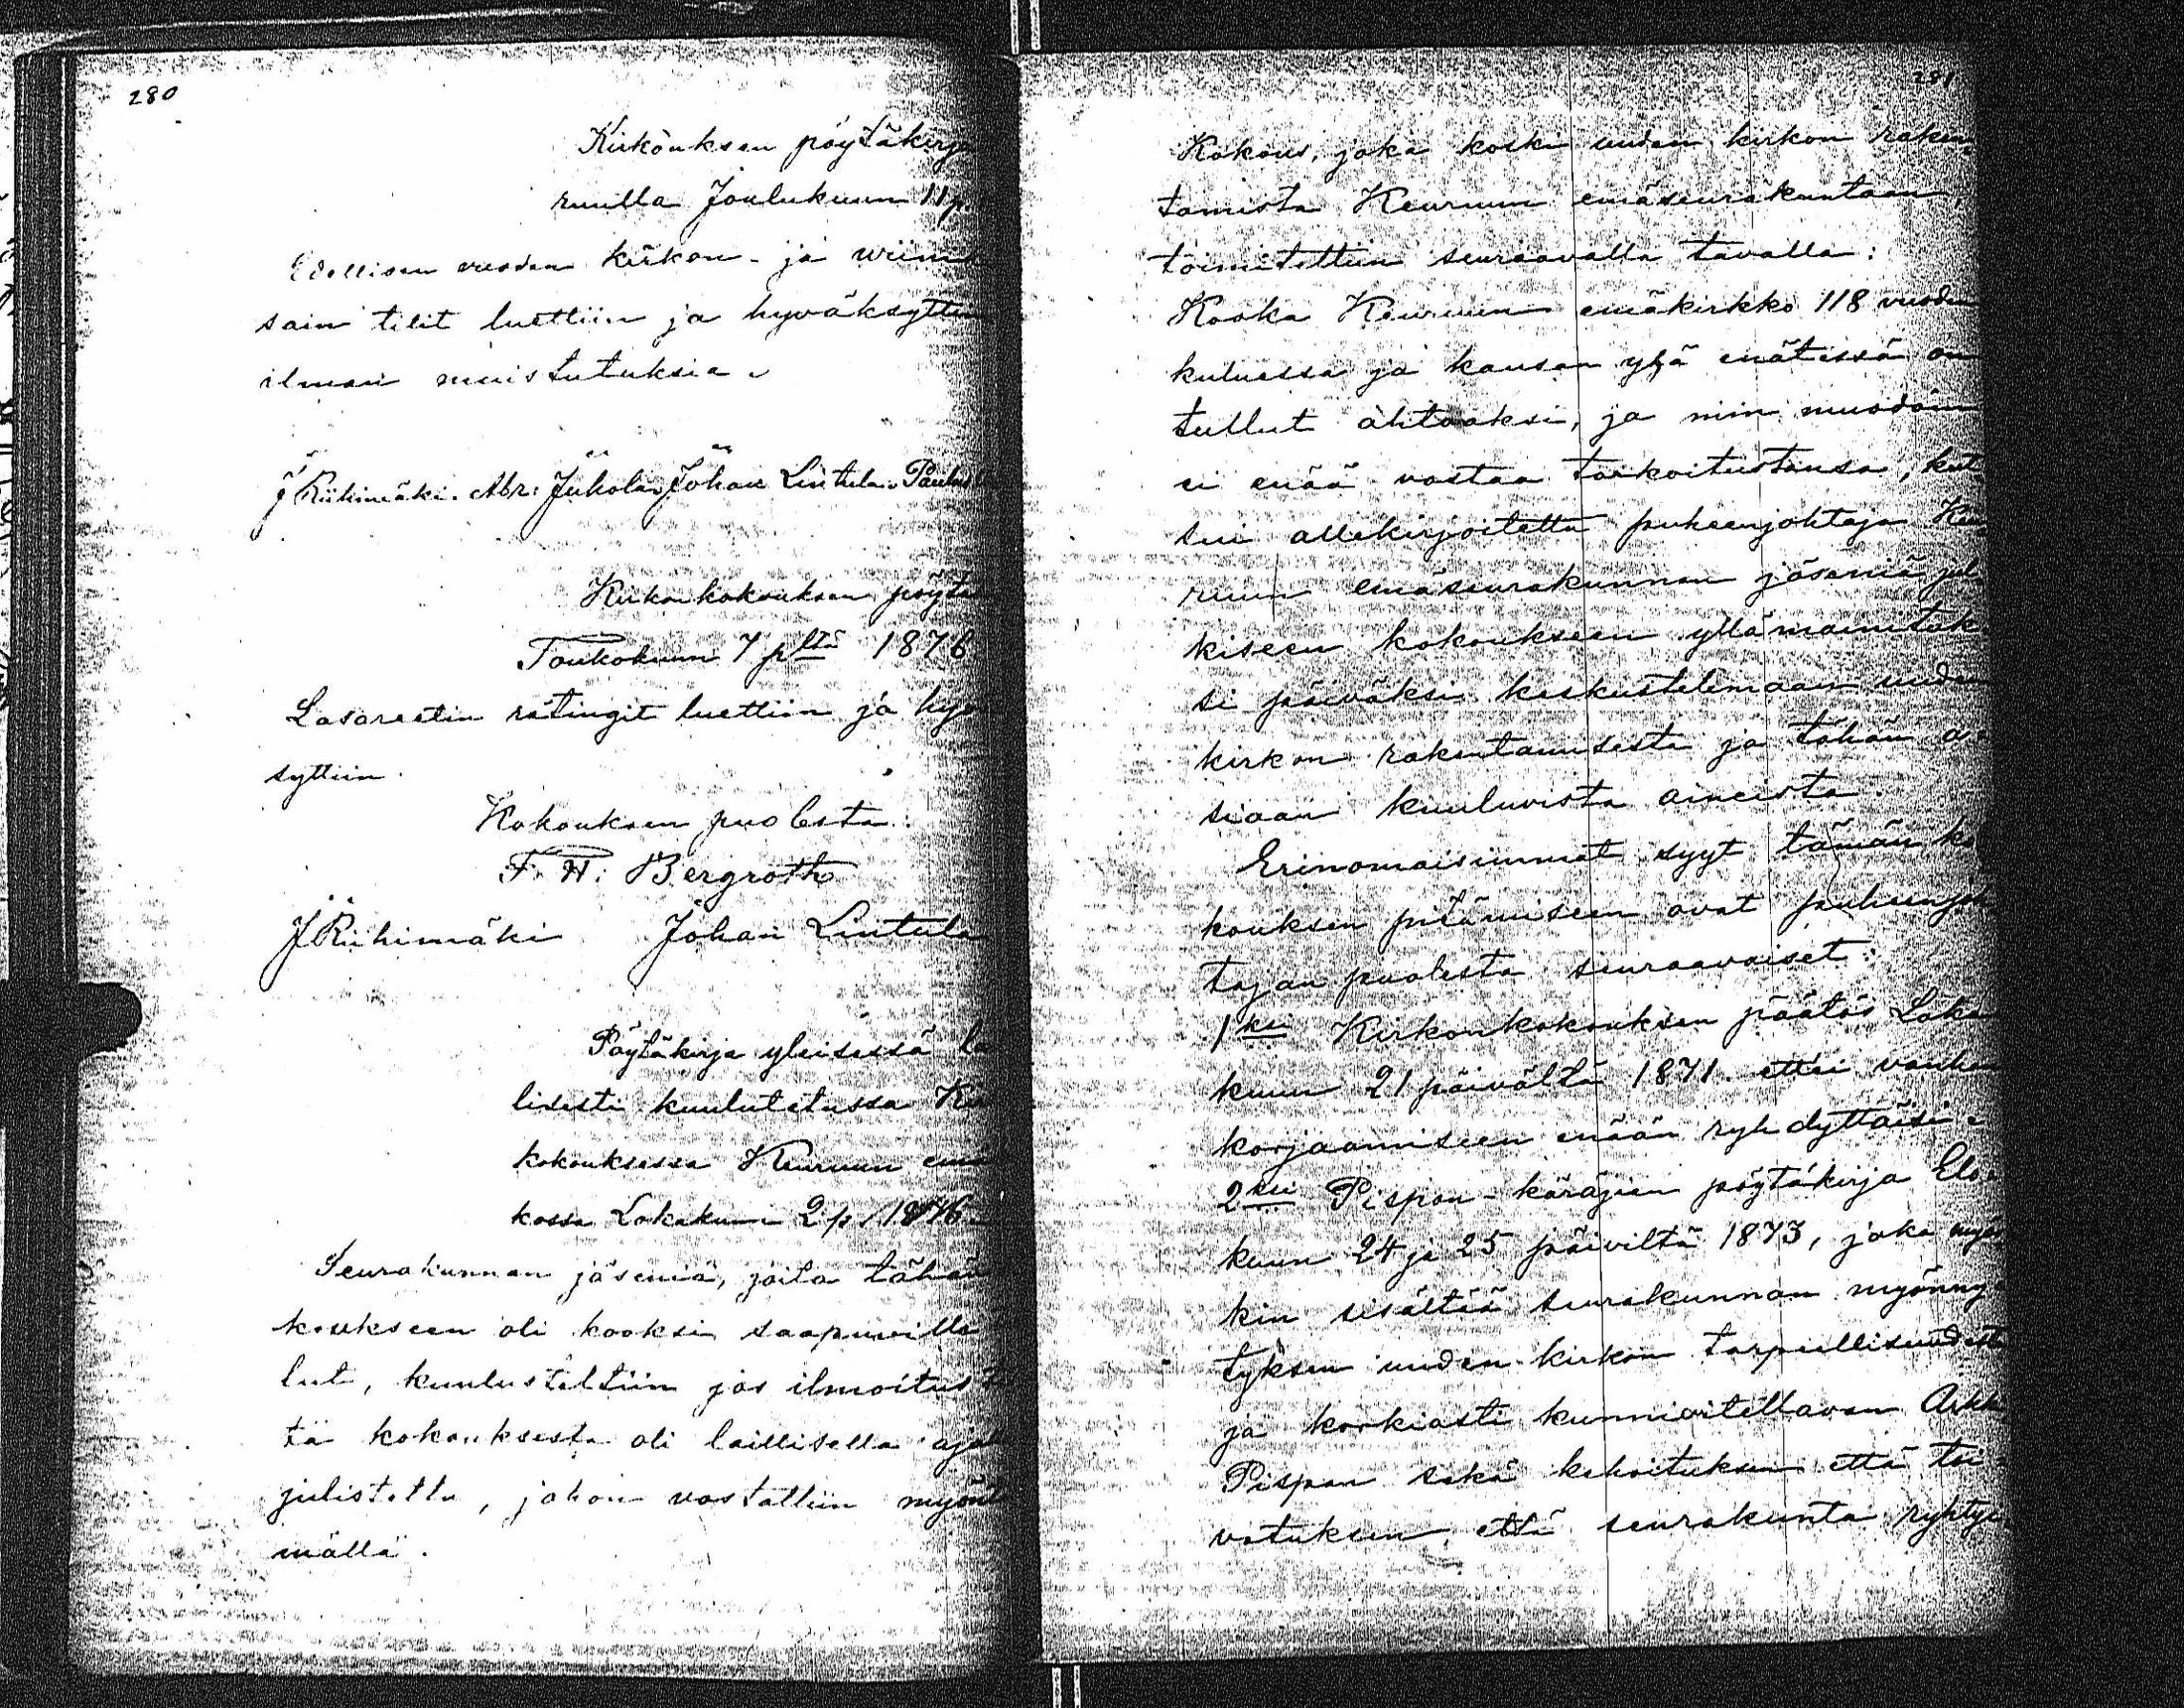 280
Kirkouksen pöytäkirja
ruulla Joulukuun 11 p.
Edellisen vuoden kirkon- ja wiini
sain tilit luettiin ja hyväksyttiin
ilman muistutuksia.
J Riihimäki. Abr: Juhola. Johan Lintula. Paulus
Kirkonkokouksen pöytä
Toukokuun 7 pltä 1876
Lasareetin rätingit luettiin ja hyv
syttiin.
Kokouksen puolesta:
F. W. Bergroth
J Riihimäki Johan Lintula
Pöytäkirja yleisessä la
lisesti kuulutetussa Ki
kokouksessa Keuruun emä
kossa Lokakuun 2 p. 1876.
Seurakunnan jäseniä, joita tähän
koukseen oli kooksi saapuvilla
lut, kuulusteltiin jos ilmoitus t
tä kokouksesta oli laillisella ajal
julistettu, johon vastattiin myönt
mällä.
281
Kokous, joka koski uuden kirkon raken
tamista Keuruun emäseurakuntaan,
toimitettiin seuraavalla tavalla:
Koska Keuruun emäkirkko 118 vuoden
kuluessa ja kansan yhä enätessä on
tullut ahtaaksi, ja niin muodoin
ei enää vastaa tarkoitustansa, kut
sui allekirjoitettu puheenjohtaja Keu
ruun emäseurakunnan jäseniä jul
kiseen kokoukseen yllämainituk
si päiväksi keskustelemaan uuden
kirkon rakentamisesta ja tähän a
siaan kuuluvista aineista.
Erinomaisimmat syyt tämän ko
kouksen pitämiseen ovat puheenjoh
tajan puolesta seuraavaiset:
1ksi Kirkonkokouksen päätös Loka
kuun 21 päivältä 1871. ettei vanhan
korjaamiseen enään ryhdyttäisi
2ksi Pispan-käräjäin pöytäkirja Elo
kuun 24 ja 25 päiviltä 1873, joka myös
kin sisältää seurakunnan myönny
tyksen uuden kirkon tarpeellisuudesta
ja korkiasti kunnioitettavan Arkki
Pispan sekä kehoituksen että toi
votuksen, että seurakunta ryhtyi